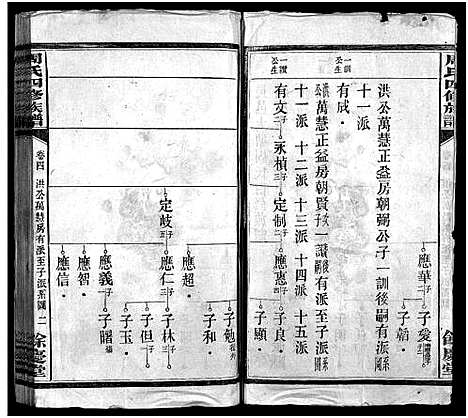 周氏四修族譜
餘慶堂
應華 子愛
子韜
洪公萬慧正益房朝弼公子一訓後嗣有派至子派系圖
十一派
一訓公生
有成
洪公萬慧正益房朝賢公次子一讚後嗣有派至子派系圖
十一派 十二派 十三派 十四派 十五派
一讚公生
有文 永楨 定制 應惠 子良
子顯
子勉
應超 子和
定歧 應仁 子林
子但
子玉
應義 子瞎
應智
應信
周氏四修族譜
卷四 洪公萬慧房有派至子派系圖 二
餘慶堂